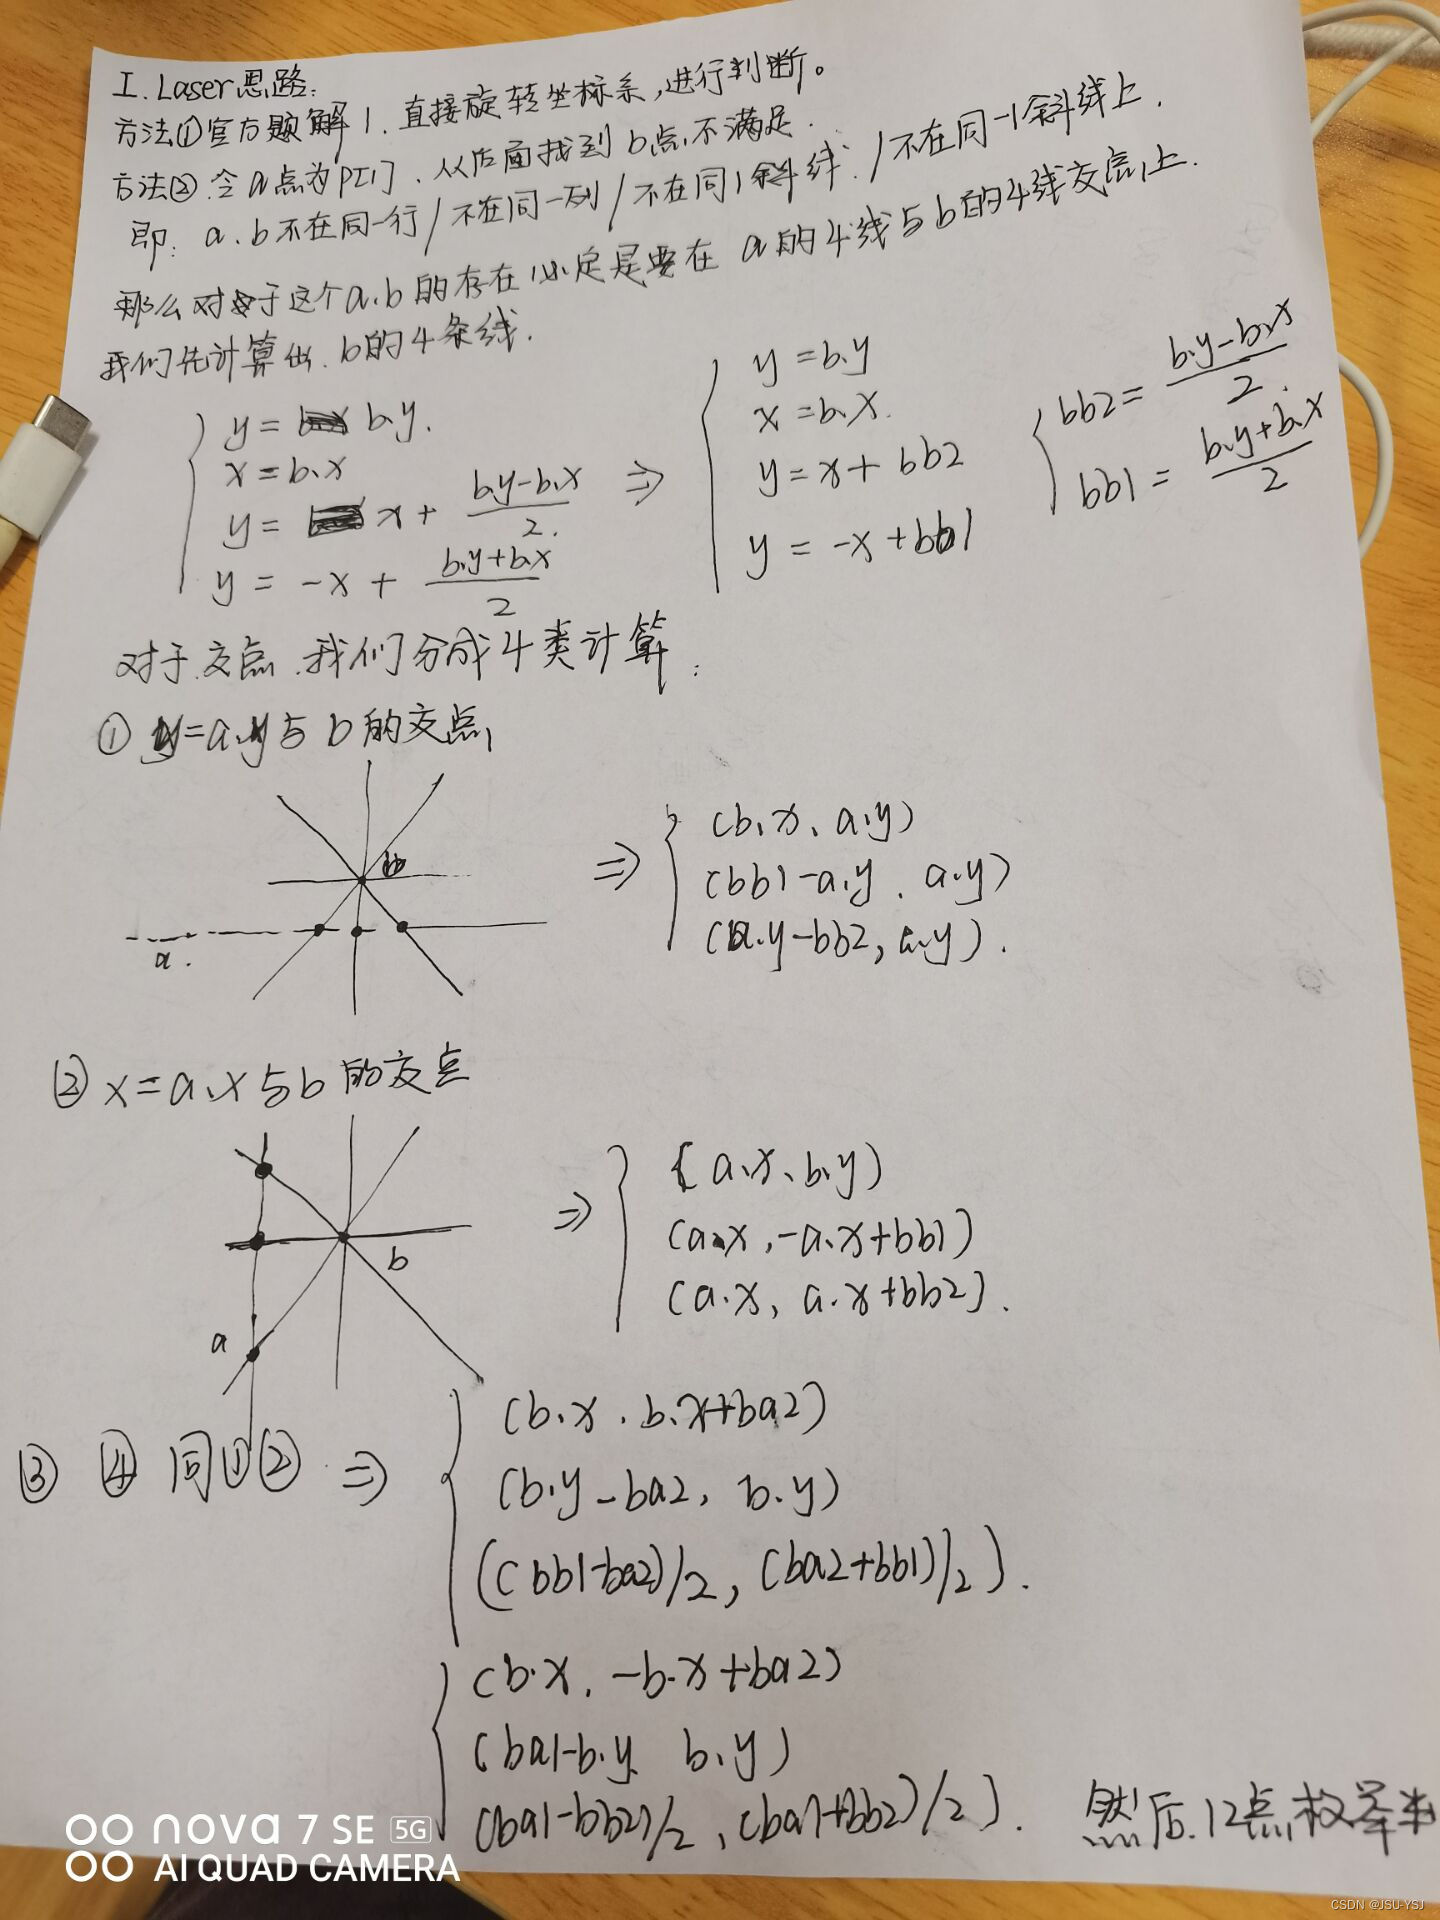 I. Laser思路:
方法①官方题解1. 直接旋转坐标系,进行判断。
方法②.令a点为P[1]. 从后面找到b点,不满足.
即: a.b不在同一行/不在同一列/不在同1斜线./不在同一1斜线上.
那么对于这个a.b的存在,必定是要在a的4线与b的4线交点上.
我们先计算出.b的4条线.
y = b.y.
x = b.x
y = x + (b.y-b.x)/2.
y = -x + (b.y+b.x)/2
⇒
y = b.y
x = b.x.
y = x + bb2
y = -x + bb1
bb2 = (b.y-b.x)/2.
bb1 = (b.y+b.x)/2
对于.交点.我们分成4类计算:
① y=a.y与b的交点,
b
a.
⇒
(b.x. a.y)
(bb1-a.y. a.y)
(a.y-bb2, a.y).
② x=a.x与b的交点
b
a
⇒
(a.x. b.y)
(a.x, -a.x+bb1)
(a.x, a.x+bb2).
③ ④ 同①② ⇒
(b.x. b.x+ba2)
(b.y-ba2, b.y)
((bb1-ba2)/2, (ba2+bb1)/2).
(b.x. -b.x+ba2)
(ba1-b.y b.y)
(ba1-bb2)/2, (ba1+bb2)/2).
然后.12点枚举
nova 7 SE 5G
AI QUAD CAMERA
CSDN @JSU-YSJ